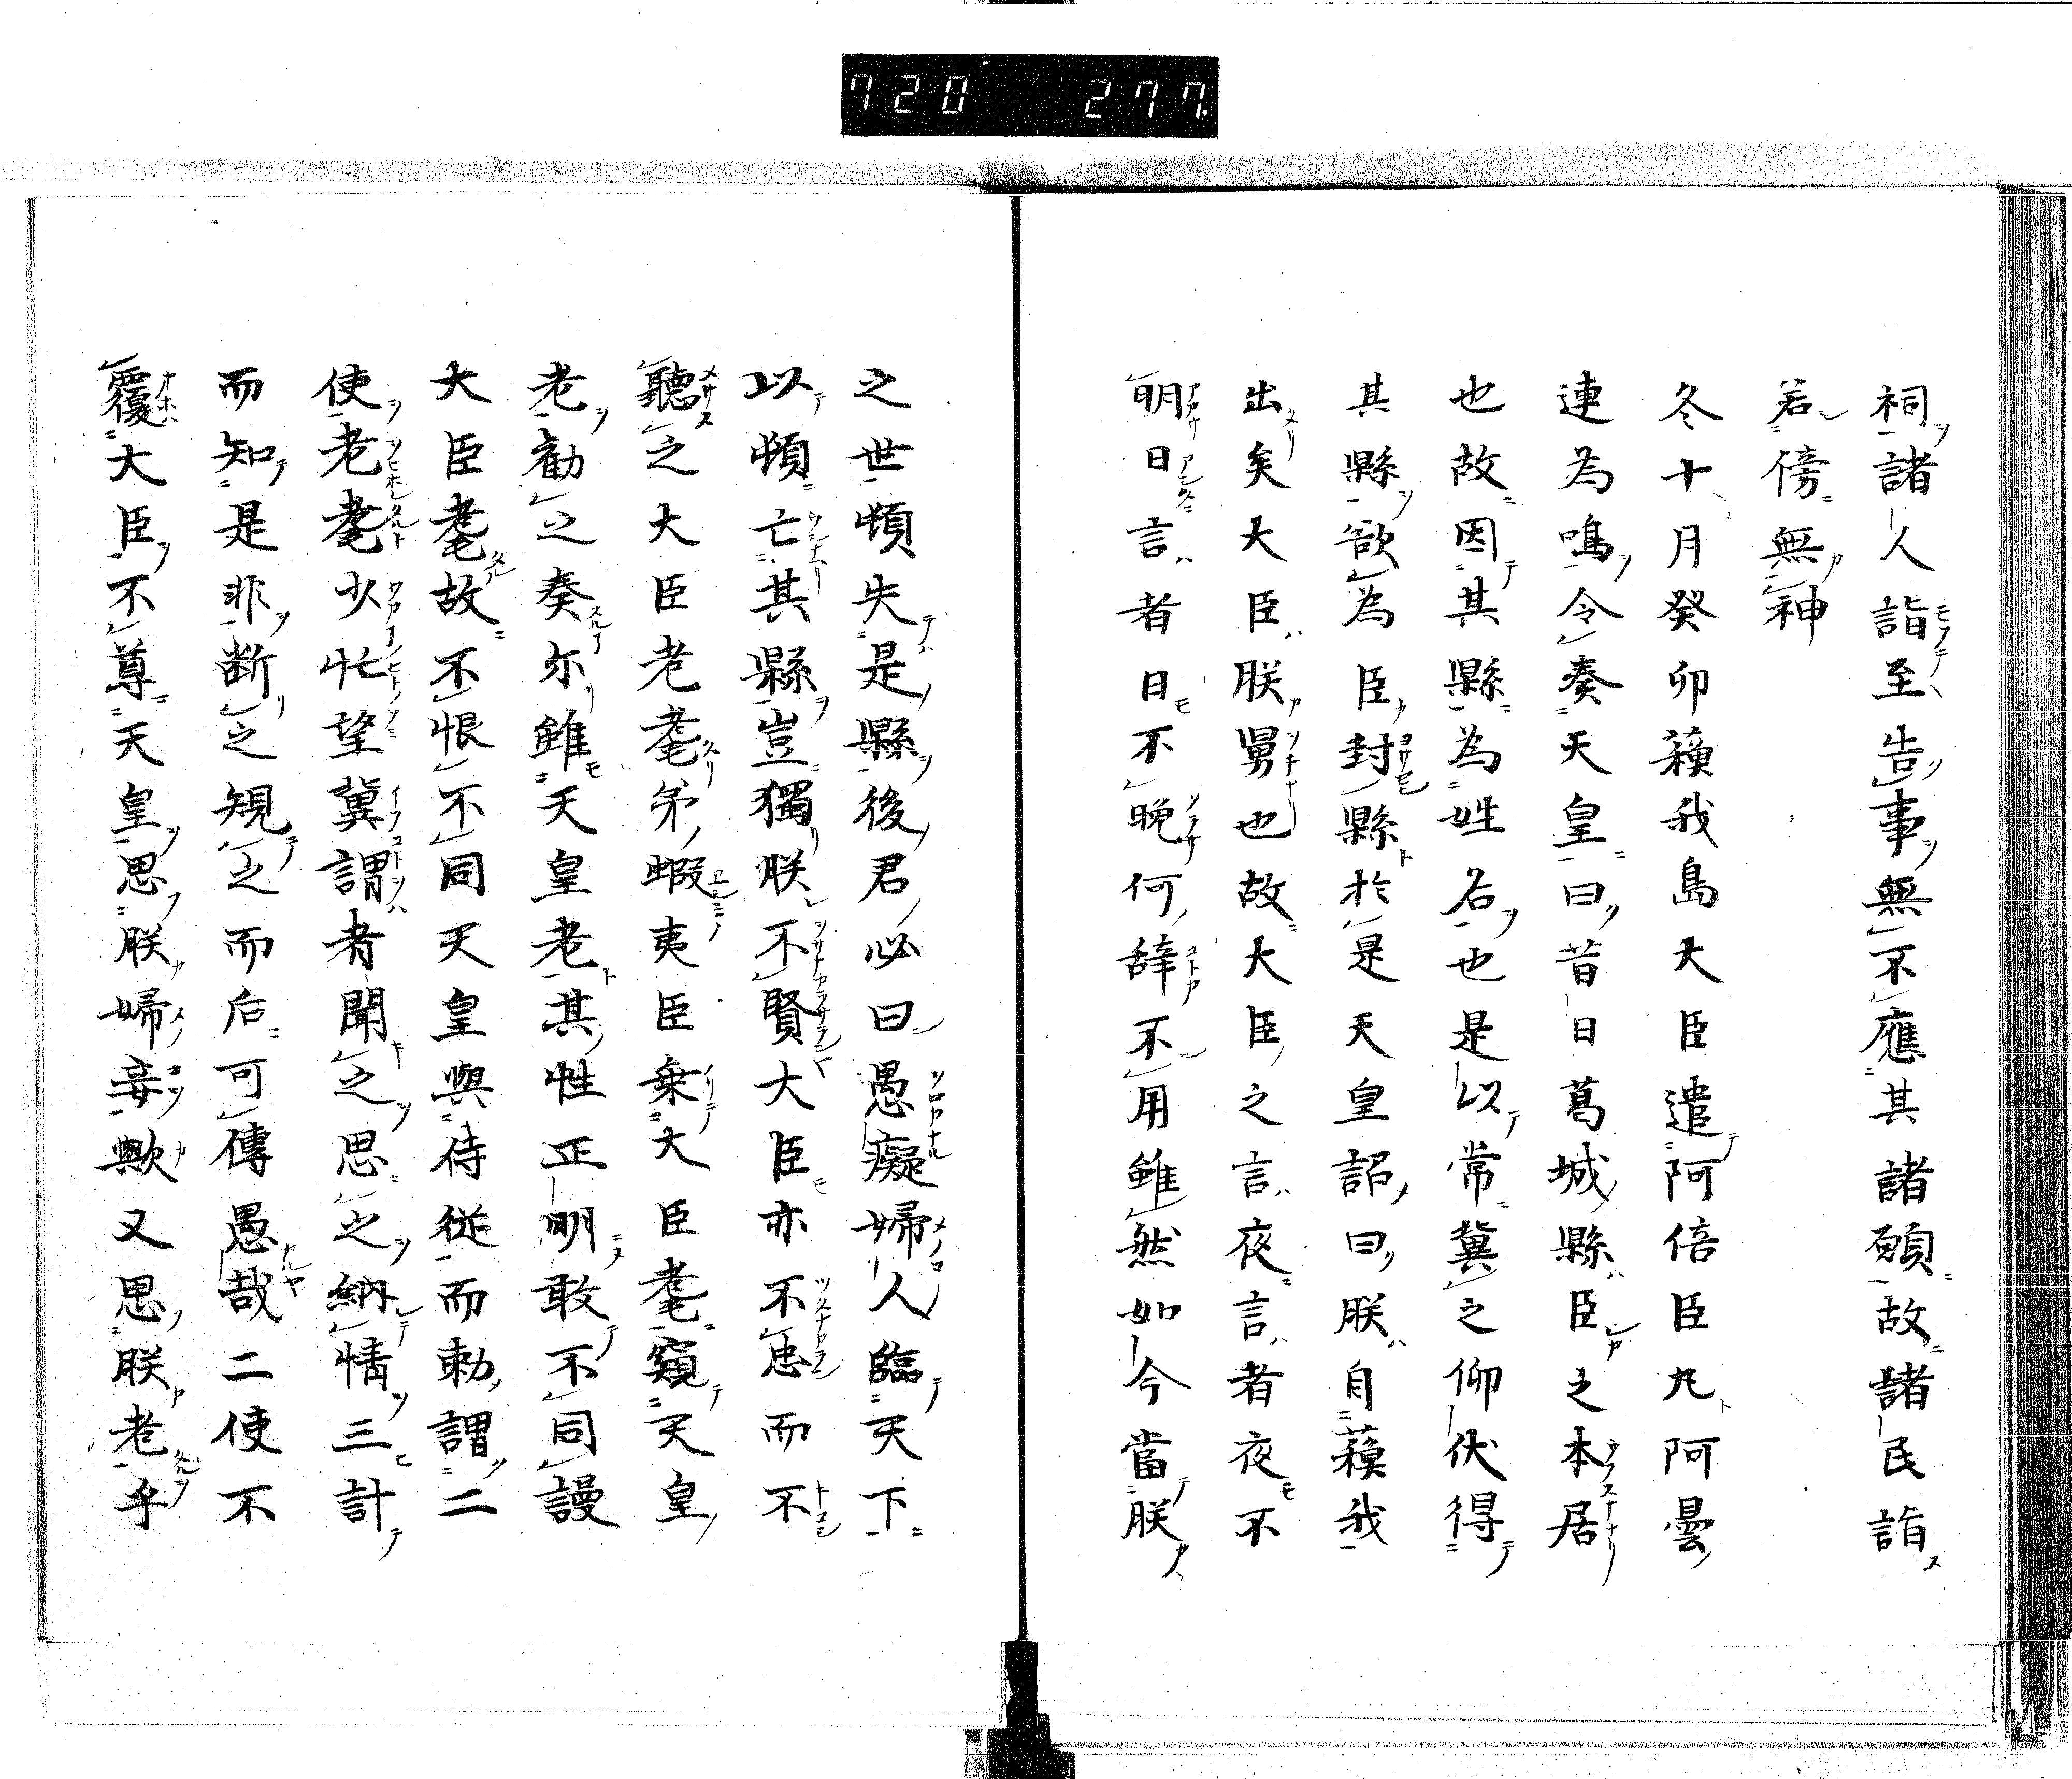 720 277
祠諸人詣至告事無不應其諸願故諸民詣
若傍無神
冬十月癸卯蘓我島大臣遣阿倍臣九阿曇
連為鳴令奏天皇曰昔日葛城縣臣之本居
也故因其縣為姓名也是以常冀之仰伏得
其縣欲為臣封縣於是天皇詔曰朕自蘓我
出矣大臣朕舅也故大臣之言夜言者夜不
明日言者日不晩何辞不用雖然如今當朕
之世頓失是縣後君必曰愚癡婦人臨天下
以頓亡其縣豈獨朕不賢大臣亦不忠而不
聽之大臣老耄弟蝦夷臣乗大臣耄窺天皇
老勸之奏尓雖天皇老其性正明敢不同謾
大臣耄故不恨不同天皇與侍從而勅謂二
使老耄少忙望冀謂者聞之思之納情三計
而知是非断之規之而后可傳愚哉二使不
覆大臣不尊天皇思朕婦妾歟又思朕老乎